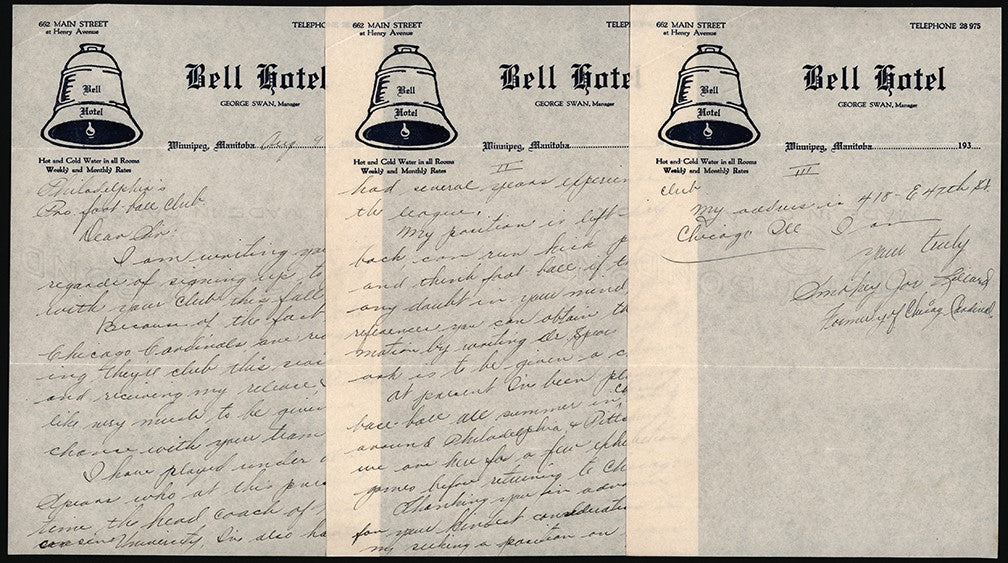 662 MAIN STREET
at Henry Avenue
TELEPHONE
Bell
Hotel
Bell Hotel
GEORGE SWAN, Manager
Winnipeg, Manitoba Aug 9
Hot and Cold Water in all Rooms
Weekly and Monthly Rates
Philadelphia's
Pro. foot-ball Club
Dear Sir:
I am writing you
regards of signing up to
with your club this fall
Because of the fact
Chicago Cardinals are
ing they'll club this
and receiving my release,
like very much to be given
chance with your team
I have played under
Spears who at this
time the head coach of
University, I've also ha
662 MAIN STREET
at Henry Avenue
TELEP
Bell
Hotel
Bell Hote
GEORGE SWAN, Manager
Winnipeg, Manitoba
Hot and Cold Water in all Rooms
Weekly and Monthly Rates
II
had several years experien
the league.
My position is left
back can run kick p
and think foot ball, if t
any doubt in your mind
references you can obtain th
mation by writing Dr. Spear
ask is to be given a c
at present I've been pl
base ball all summer in
around Philadelphia, & Pitts
we are here for a few exhi
games before returning to Chicago
Thanking you in adva
for your kindest consideratio
my seeking a position on
662 MAIN STREET
at Henry Avenue
TELEPHONE 28 975
Bell
Hotel
Bell Hotel
GEORGE SWAN, Manager
Winnipeg, Manitoba 193
Hot and Cold Water in all Rooms
Weekly and Monthly Rates
III
club
My address is 418-E 47th St.
Chicago Ill I am
your truly
Smokey Joe Lillard
Formerly of Chicag Cardinal.